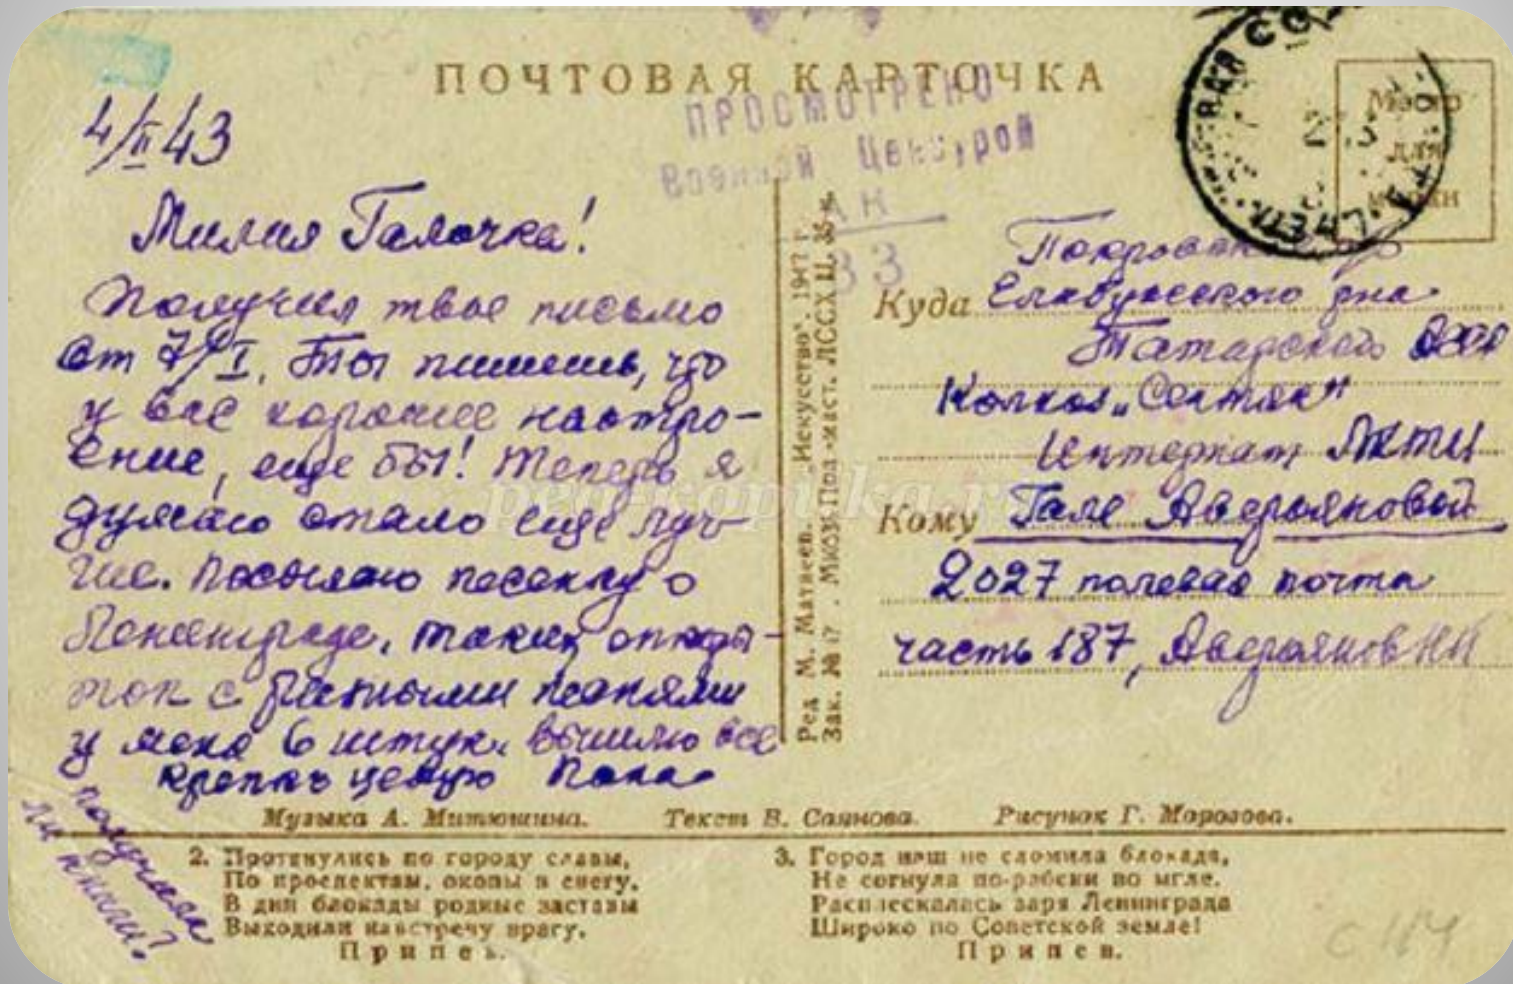 ПОЧТОВАЯ КАРТОЧКА
ПРОСМОТРЕНО
Военной Цензурой
33
Место
для
марки
4/II 43
Милая Галочка!
Получил твое письмо
от 7/I. Ты пишешь, что
у вас хорошее настро-
ение, еще бы! Теперь я
думаю стало еще луч-
ше. Посылаю песенку о
Ленинграде, таких откры-
ток с разными песнями
у меня 6 штук. Вышлю все
крепко целую Папа
получили
ли книги?
Ред М. Матвеев. „Искусство". 1942 г.
Куда
Елабужского р-на
Татарской АССР
Колхоз „Сентяк"
Интернат ЛКТИ
Кому Гале Аверьяновой
2027 полевая почта
часть 187, Аверьянов НИ
Музыка А. Митюшина. Текст В. Саянова. Рисунок Г. Морозова.
2. Протянулись по городу славы,
По проспектам, окопы в снегу.
В дни блокады родные заставы
Выходили навстречу врагу.
Припев.
3. Город наш не сломила блокада,
Не согнула по-рабски во мгле.
Расплескалась заря Ленинграда
Широко по Советской земле!
Припев.